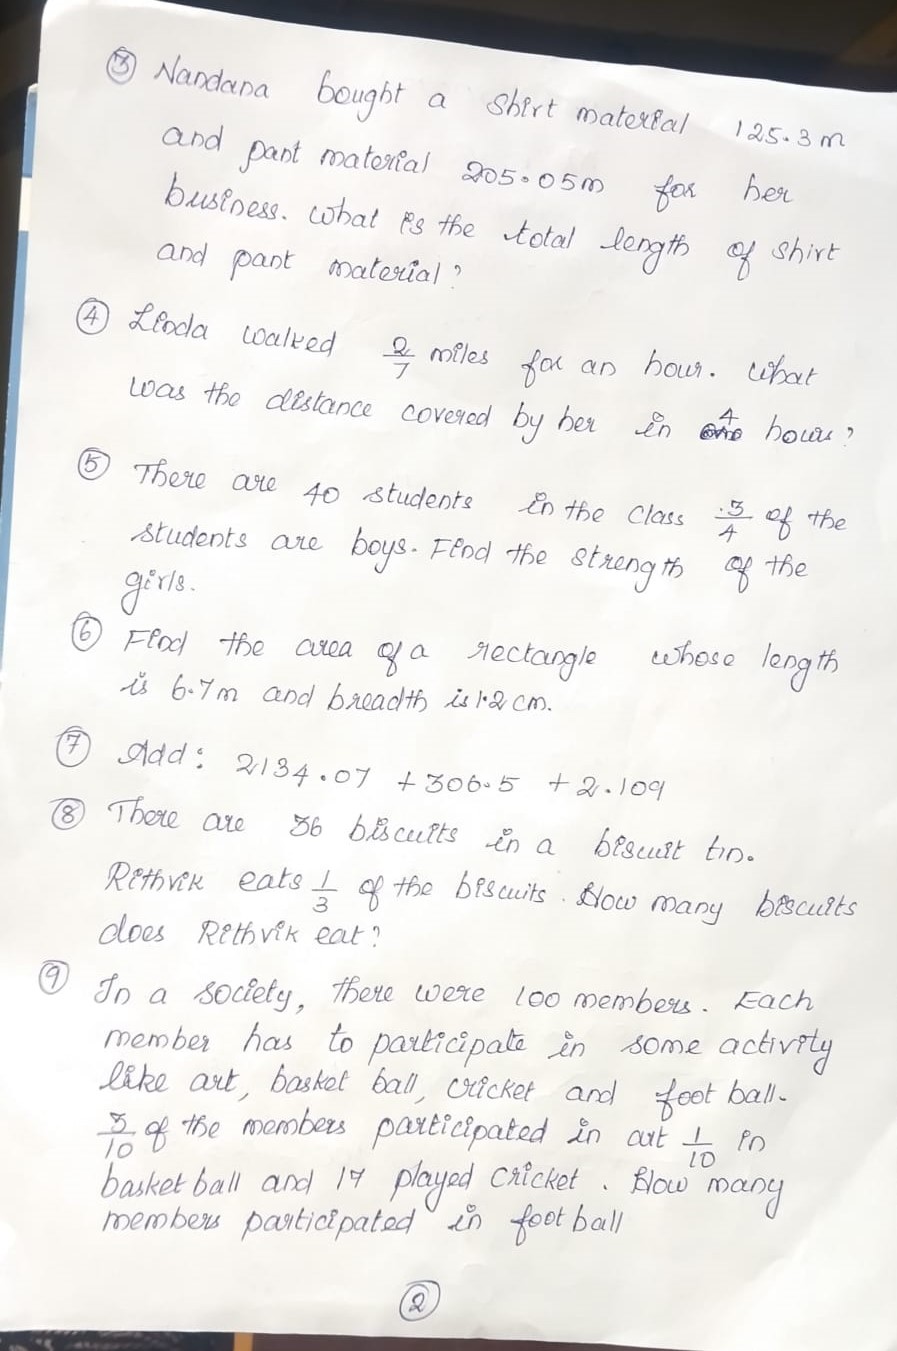 ③ Nandana bought a shirt material 125.3m
and pant material 205.05m for her
business. What is the total length of shirt
and pant material?
④ Linda walked 2/7 miles for an hour. What
was the distance covered by her in 4 hours?
⑤ There are 40 students in the class 3/4 of the
students are boys. Find the strength of the
girls.
⑥ Find the area of a rectangle whose length
is 6.7m and breadth is 1.2 cm.
⑦ Add: 2134.07 + 306.5 + 2.109
⑧ There are 36 biscuits in a biscuit tin.
Rithvik eats 1/3 of the biscuits. How many biscuits
does Rithvik eat?
⑨ In a society, there were 100 members. Each
member has to participate in some activity
like art, basket ball, cricket and foot ball.
3/10 of the members participated in art 1/10 in
basket ball and 17 played cricket. How many
members participated in foot ball
②